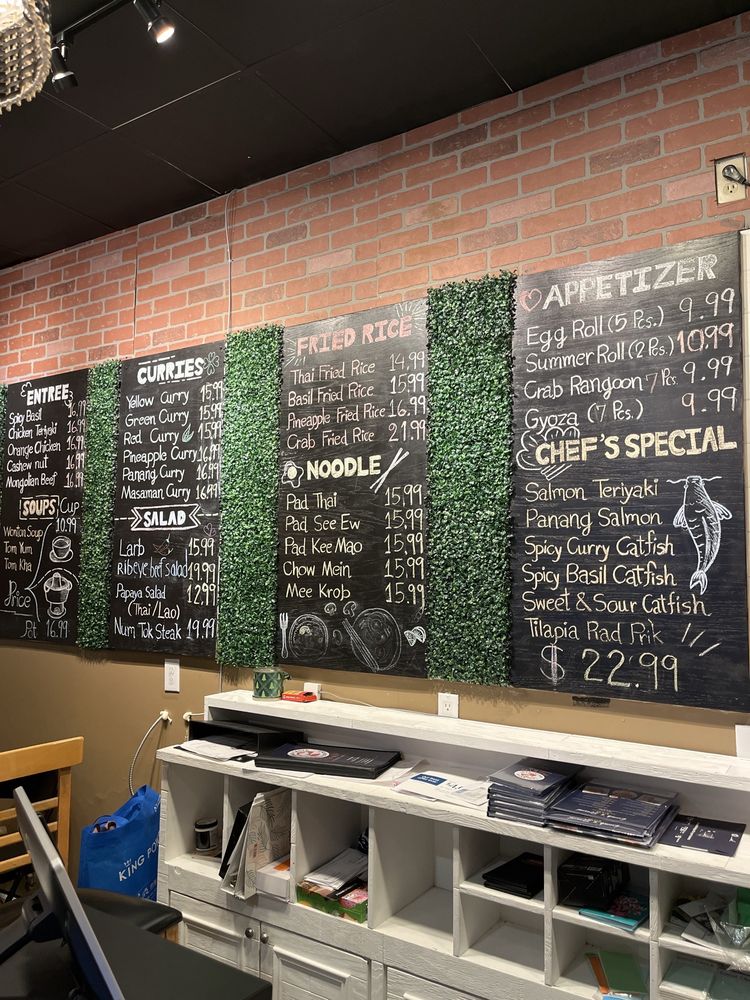 ENTREE
Spicy Basil 16.99
Chicken Teriyaki 16.99
Orange Chicken 16.99
Cashew nut 16.99
Mongolian Beef 16.99
SOUPS Cup
Wonton Soup 10.99
Tom Yum
Tom Kha
Price
Pot 16.99
CURRIES
Yellow Curry 15.99
Green Curry 15.99
Red Curry 15.99
Pneapple Curry 16.99
Panang Curry 16.99
Masaman Curry 16.99
SALAD
Larb 15.99
Ribeye beef Salad 19.99
Papaya Salad 12.99
(Thai/Lao)
Num Tok Steak 19.99
FRIED RICE
Thai Fried Rice 14.99
Basil Fried Rice 15.99
Pneapple Fried Rice 16.99
Crab Fried Rice 21.99
NOODLE
Pad Thai 15.99
Pad See Ew 15.99
Pad Kee Mao 15.99
Chow Mein 15.99
Mee Krob 15.99
APPETIZER
Egg Roll (5 Pcs.) 9.99
Summer Roll (2 Pcs.) 10.99
Crab Rangoon 7 Pcs. 9.99
Gyoza (7 Pcs.) 9.99
CHEF'S SPECIAL
Salmon Teriyaki
Panang Salmon
Spicy Curry Catfish
Spicy Basil Catfish
Sweet & Sour Catfish
Tilapia Rad Prik
$ 22.99
KING PO